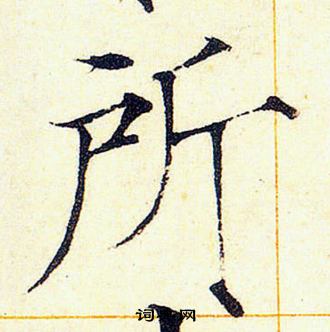 所
词典网